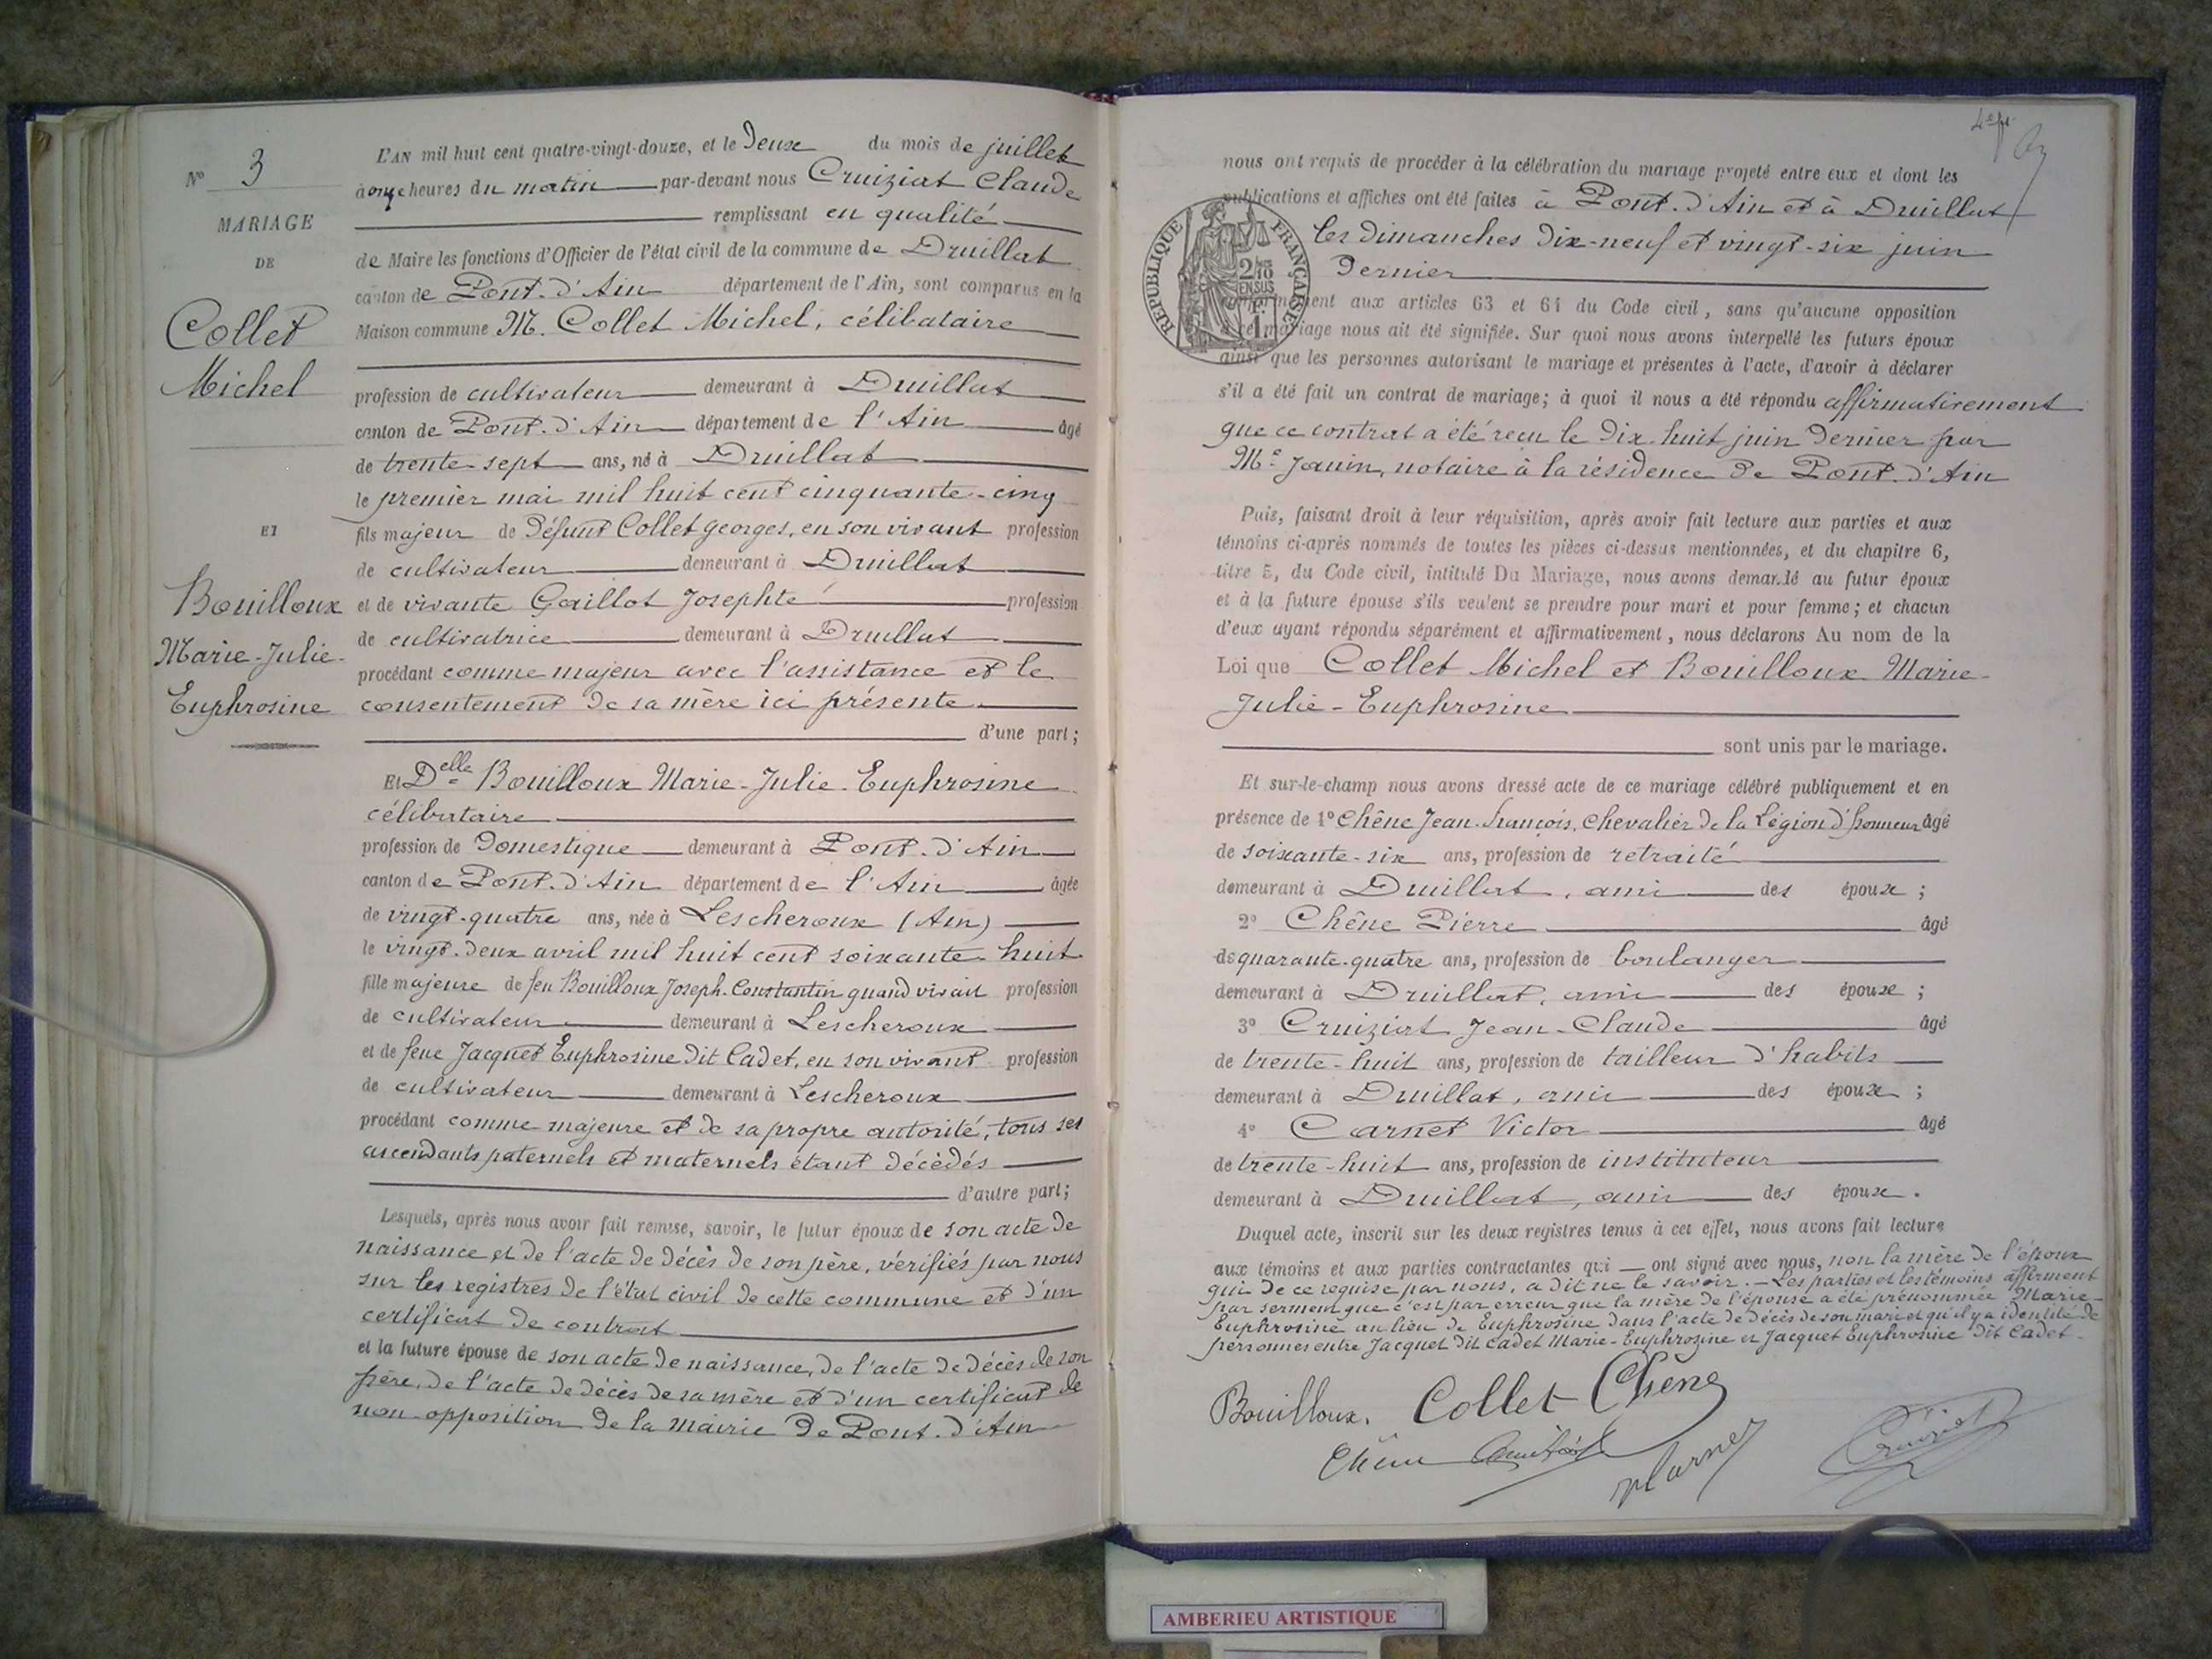 N° 3
MARIAGE
DE
Collet
Michel
ET
Bouilloux
Marie-Julie-
Euphrosine
L'AN mil huit cent quatre-vingt-douze, et le deux du mois de juillet
à onze heures du matin par-devant nous Cruiziat Claude
remplissant en qualité
de Maire les fonctions d'Officier de l'état civil de la commune de Druillat
canton de Pont-d'Ain département de l'Ain, sont comparus en la
Maison commune M. Collet Michel, célibataire
profession de cultivateur demeurant à Druillat
canton de Pont-d'Ain département de l'Ain âgé
de trente-sept ans, né à Druillat
le premier mai mil huit cent cinquante-cinq
fils majeur de défunt Collet Georges, en son vivant profession
de cultivateur demeurant à Druillat
et de vivante Gaillot Josephte profession
de cultivatrice demeurant à Druillat
procédant comme majeur avec l'assistance et le
consentement de sa mère ici présente
d'une part;
Et Delle Bouilloux Marie-Julie-Euphrosine
célibataire
profession de domestique demeurant à Pont-d'Ain
canton de Pont-d'Ain département de l'Ain âgée
de vingt-quatre ans, née à Lescheroux (Ain)
le vingt-deux avril mil huit cent soixante-huit
fille majeure de feu Bouilloux Joseph-Constantin quand vivait profession
de cultivateur demeurant à Lescheroux
et de feue Jacquet Euphrosine dit Cadet, en son vivant profession
de cultivateur demeurant à Lescheroux
procédant comme majeure et de sa propre autorité, tous ses
ascendants paternels et maternels étant décédés
d'autre part;
Lesquels, après nous avoir fait remise, savoir, le futur époux de son acte de
naissance et de l'acte de décès de son père, vérifiés par nous
sur les registres de l'état civil de cette commune et d'un
certificat de contrat
et la future épouse de son acte de naissance, de l'acte de décès de son
père, de l'acte de décès de sa mère et d'un certificat de
non-opposition de la mairie de Pont-d'Ain
nous ont requis de procéder à la célébration du mariage projeté entre eux et dont les
publications et affiches ont été faites à Pont-d'Ain et à Druillat
les dimanches dix-neuf et vingt-six juin
dernier
RÉPUBLIQUE FRANÇAISE
aux articles 63 et 64 du Code civil, sans qu'aucune opposition
à ce mariage nous ait été signifiée. Sur quoi nous avons interpellé les futurs époux
ainsi que les personnes autorisant le mariage et présentes à l'acte, d'avoir à déclarer
s'il a été fait un contrat de mariage; à quoi il nous a été répondu affirmativement
que ce contrat a été reçu le dix-huit juin dernier par
Me Janin, notaire à la résidence de Pont-d'Ain
Puis, faisant droit à leur réquisition, après avoir fait lecture aux parties et aux
témoins ci-après nommés de toutes les pièces ci-dessus mentionnées, et du chapitre 6,
titre 5, du Code civil, intitulé Du Mariage, nous avons demandé au futur époux
et à la future épouse s'ils veulent se prendre pour mari et pour femme; et chacun
d'eux ayant répondu séparément et affirmativement, nous déclarons Au nom de la
Loi que Collet Michel et Bouilloux Marie-
Julie-Euphrosine
sont unis par le mariage.
Et sur-le-champ nous avons dressé acte de ce mariage célébré publiquement et en
présence de 1° Chêne Jean-François, Chevalier de la Légion d'honneur âgé
de soixante-six ans, profession de retraité
demeurant à Druillat, ami des époux ;
2° Chêne Pierre âgé
de quarante-quatre ans, profession de boulanger
demeurant à Druillat, ami des époux ;
3° Cruiziat Jean-Claude âgé
de trente-huit ans, profession de tailleur d'habits
demeurant à Druillat, ami des époux ;
4° Carnet Victor âgé
de trente-huit ans, profession de instituteur
demeurant à Druillat, ami des époux.
Duquel acte, inscrit sur les deux registres tenus à cet effet, nous avons fait lecture
aux témoins et aux parties contractantes qui ont signé avec nous, non la mère de l'époux
qui de ce requise par nous, a dit ne le savoir. — Les parties et les témoins affirment
par serment que c'est par erreur que la mère de l'épouse a été prénommée Marie-
Euphrosine au lieu de Euphrosine dans l'acte de décès de son mari et qu'il y a identité de
personnes entre Jacquet dit Cadet Marie-Euphrosine et Jacquet Euphrosine dit Cadet.
Bouilloux. Collet Chêne
Chêne Cruiziat Carnet Cruiziat
AMBERIEU ARTISTIQUE